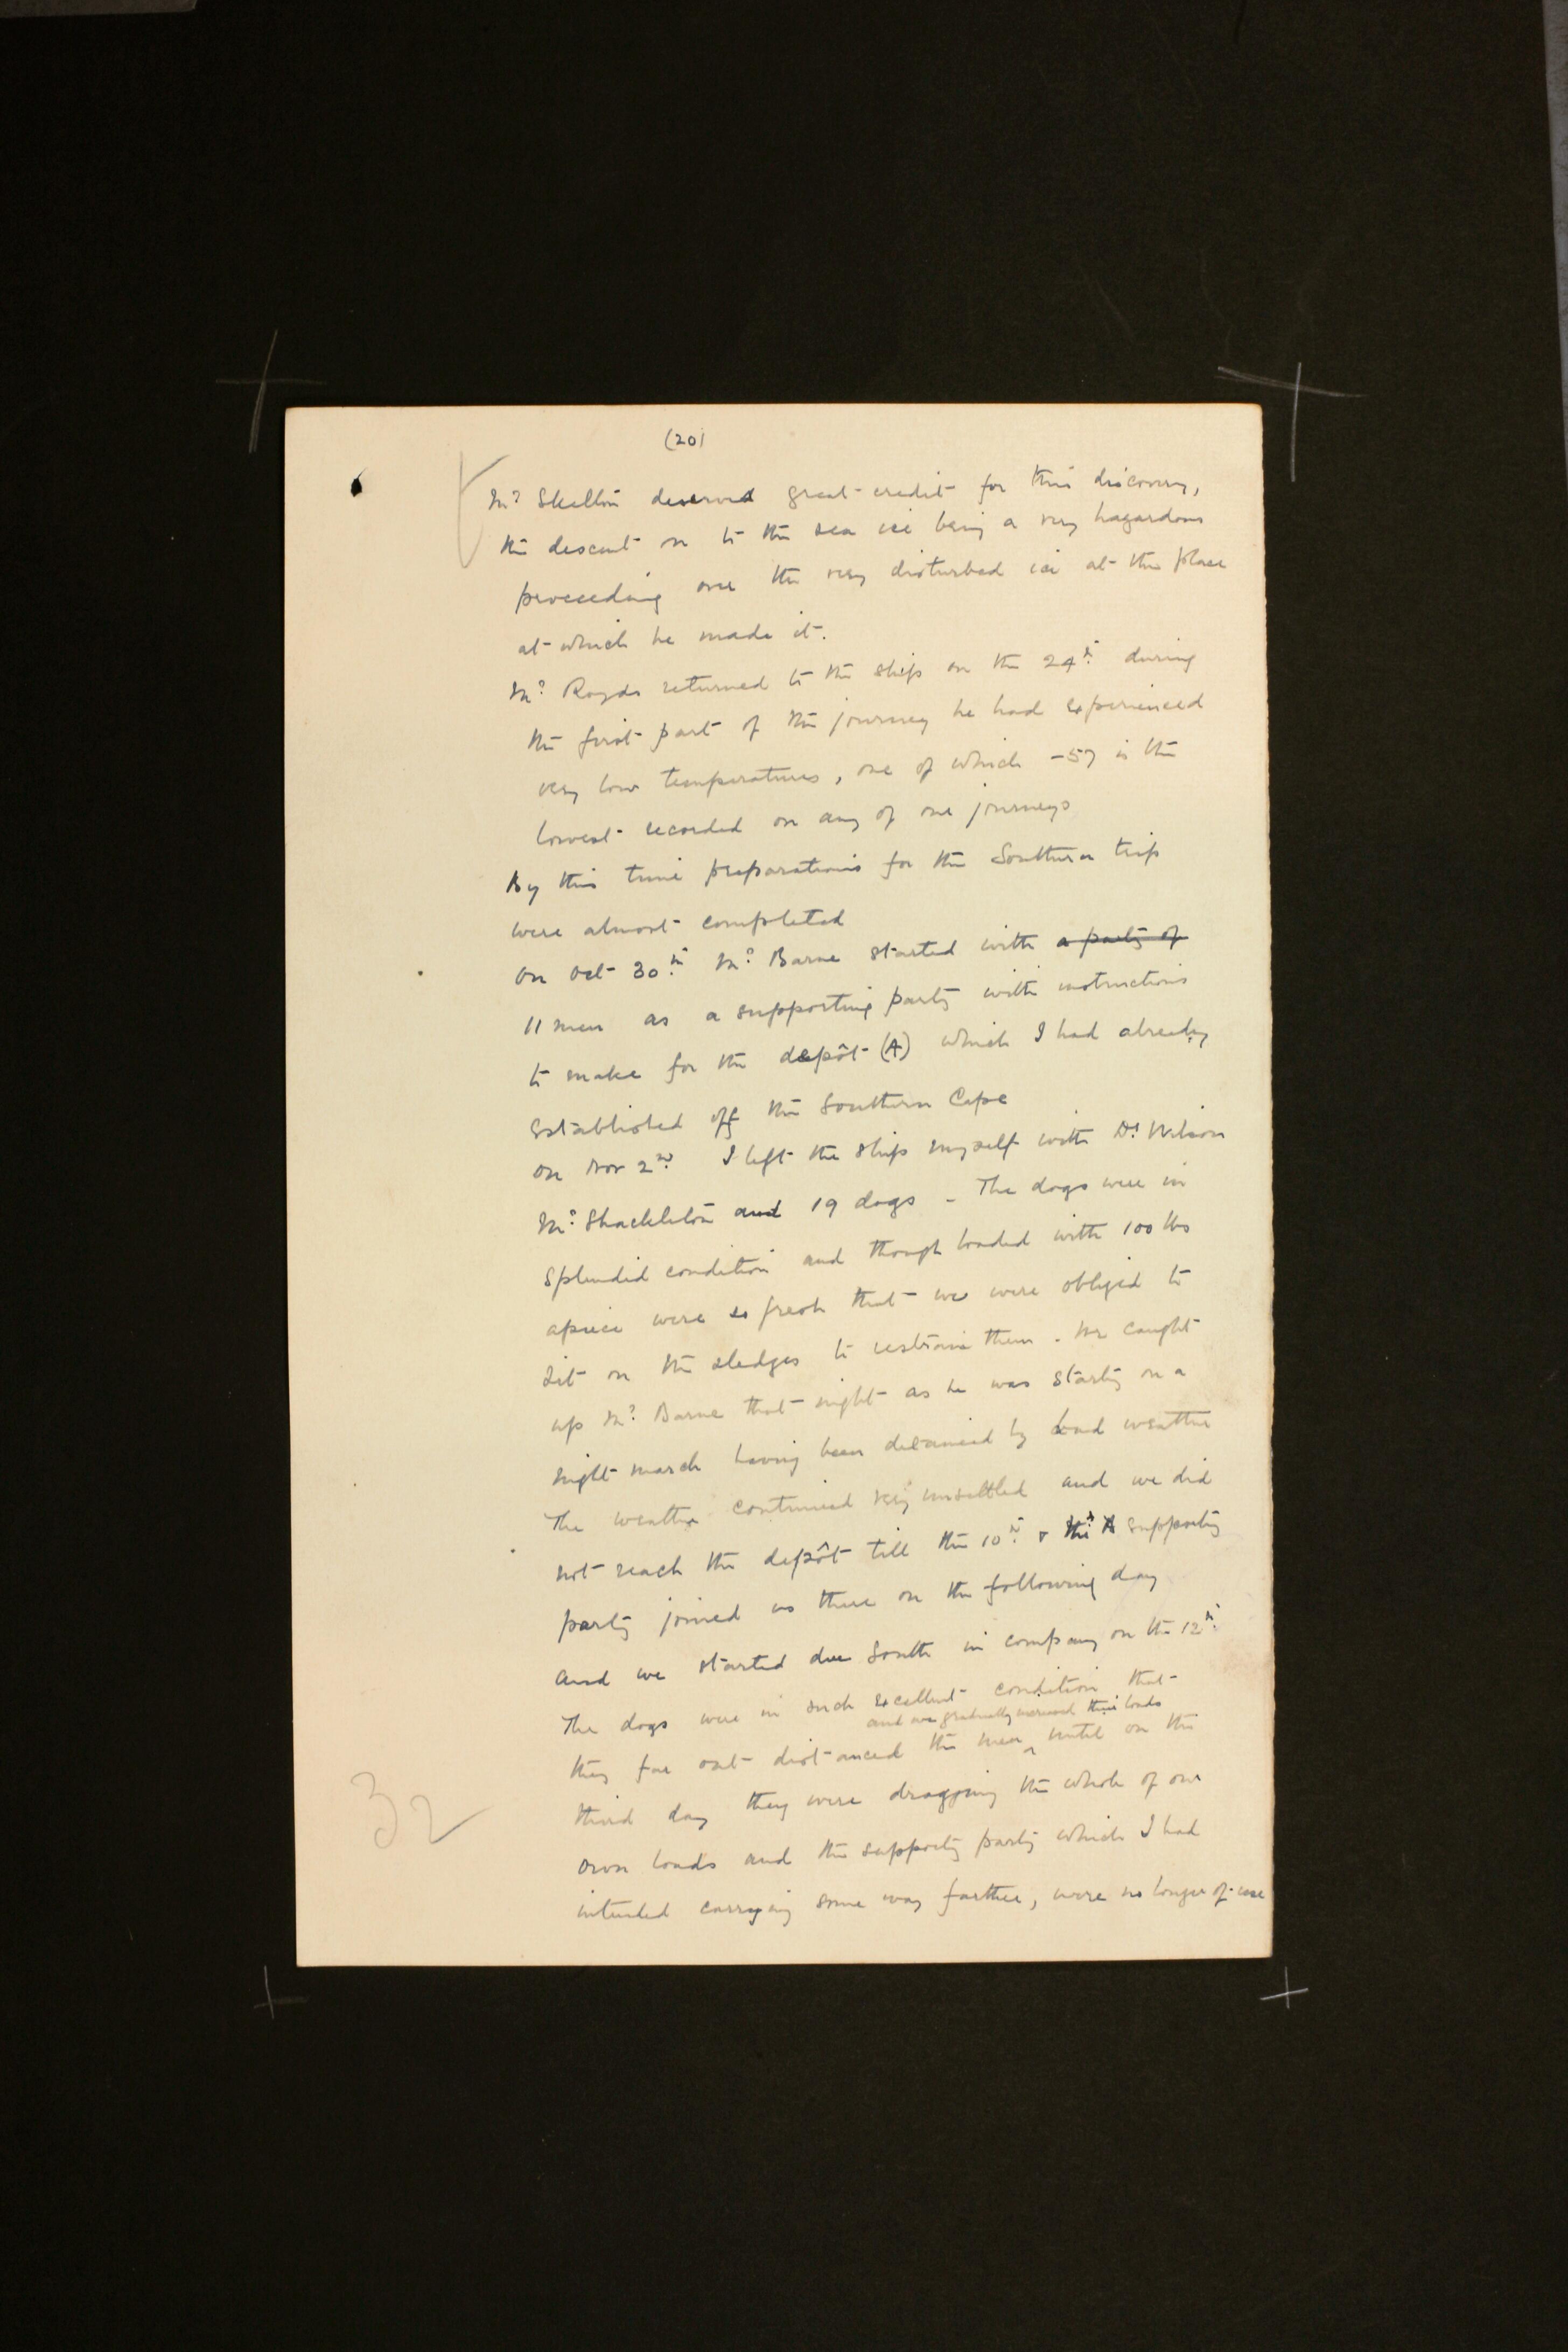 (20)
Mr Skelton deserved great credit for this discovery,
the descent on to the sea ice being a very hazardous
proceeding over the very disturbed ice at the place
at which he made it.
Mr Royds returned to the ship on the 24th during
the first part of the journey he had experienced
very low temperatures, one of which -57 is the
lowest recorded on any of our journeys
By this time preparations for the Southern trip
were almost completed
On Oct 30th Mr Barne started with a party of
11 men as a supporting party with instructions
to make for the depôt (A) which I had already
established off the Southern Cape
On Nov 2nd I left the ship myself with Dr Wilson
Mr Shackleton and 19 dogs - The dogs were in
splendid condition and though loaded with 100 lbs
apiece were so fresh that we were obliged to
sit on the sledges to restrain them - We caught
up Mr Barne that night as he was starting on a
night march having been detained by bad weather
The weather continued very unsettled and we did
not reach the depôt till the 10th & the supporting
party joined us there on the following day
and we started due South in company on the 12th
The dogs were in such excellent condition that
and we gradually increased their loads
they far out distanced the men ^ until on the
third day they were dragging the whole of our
own loads and the supporting party which I had
intended carrying some way further, were no longer of use
32